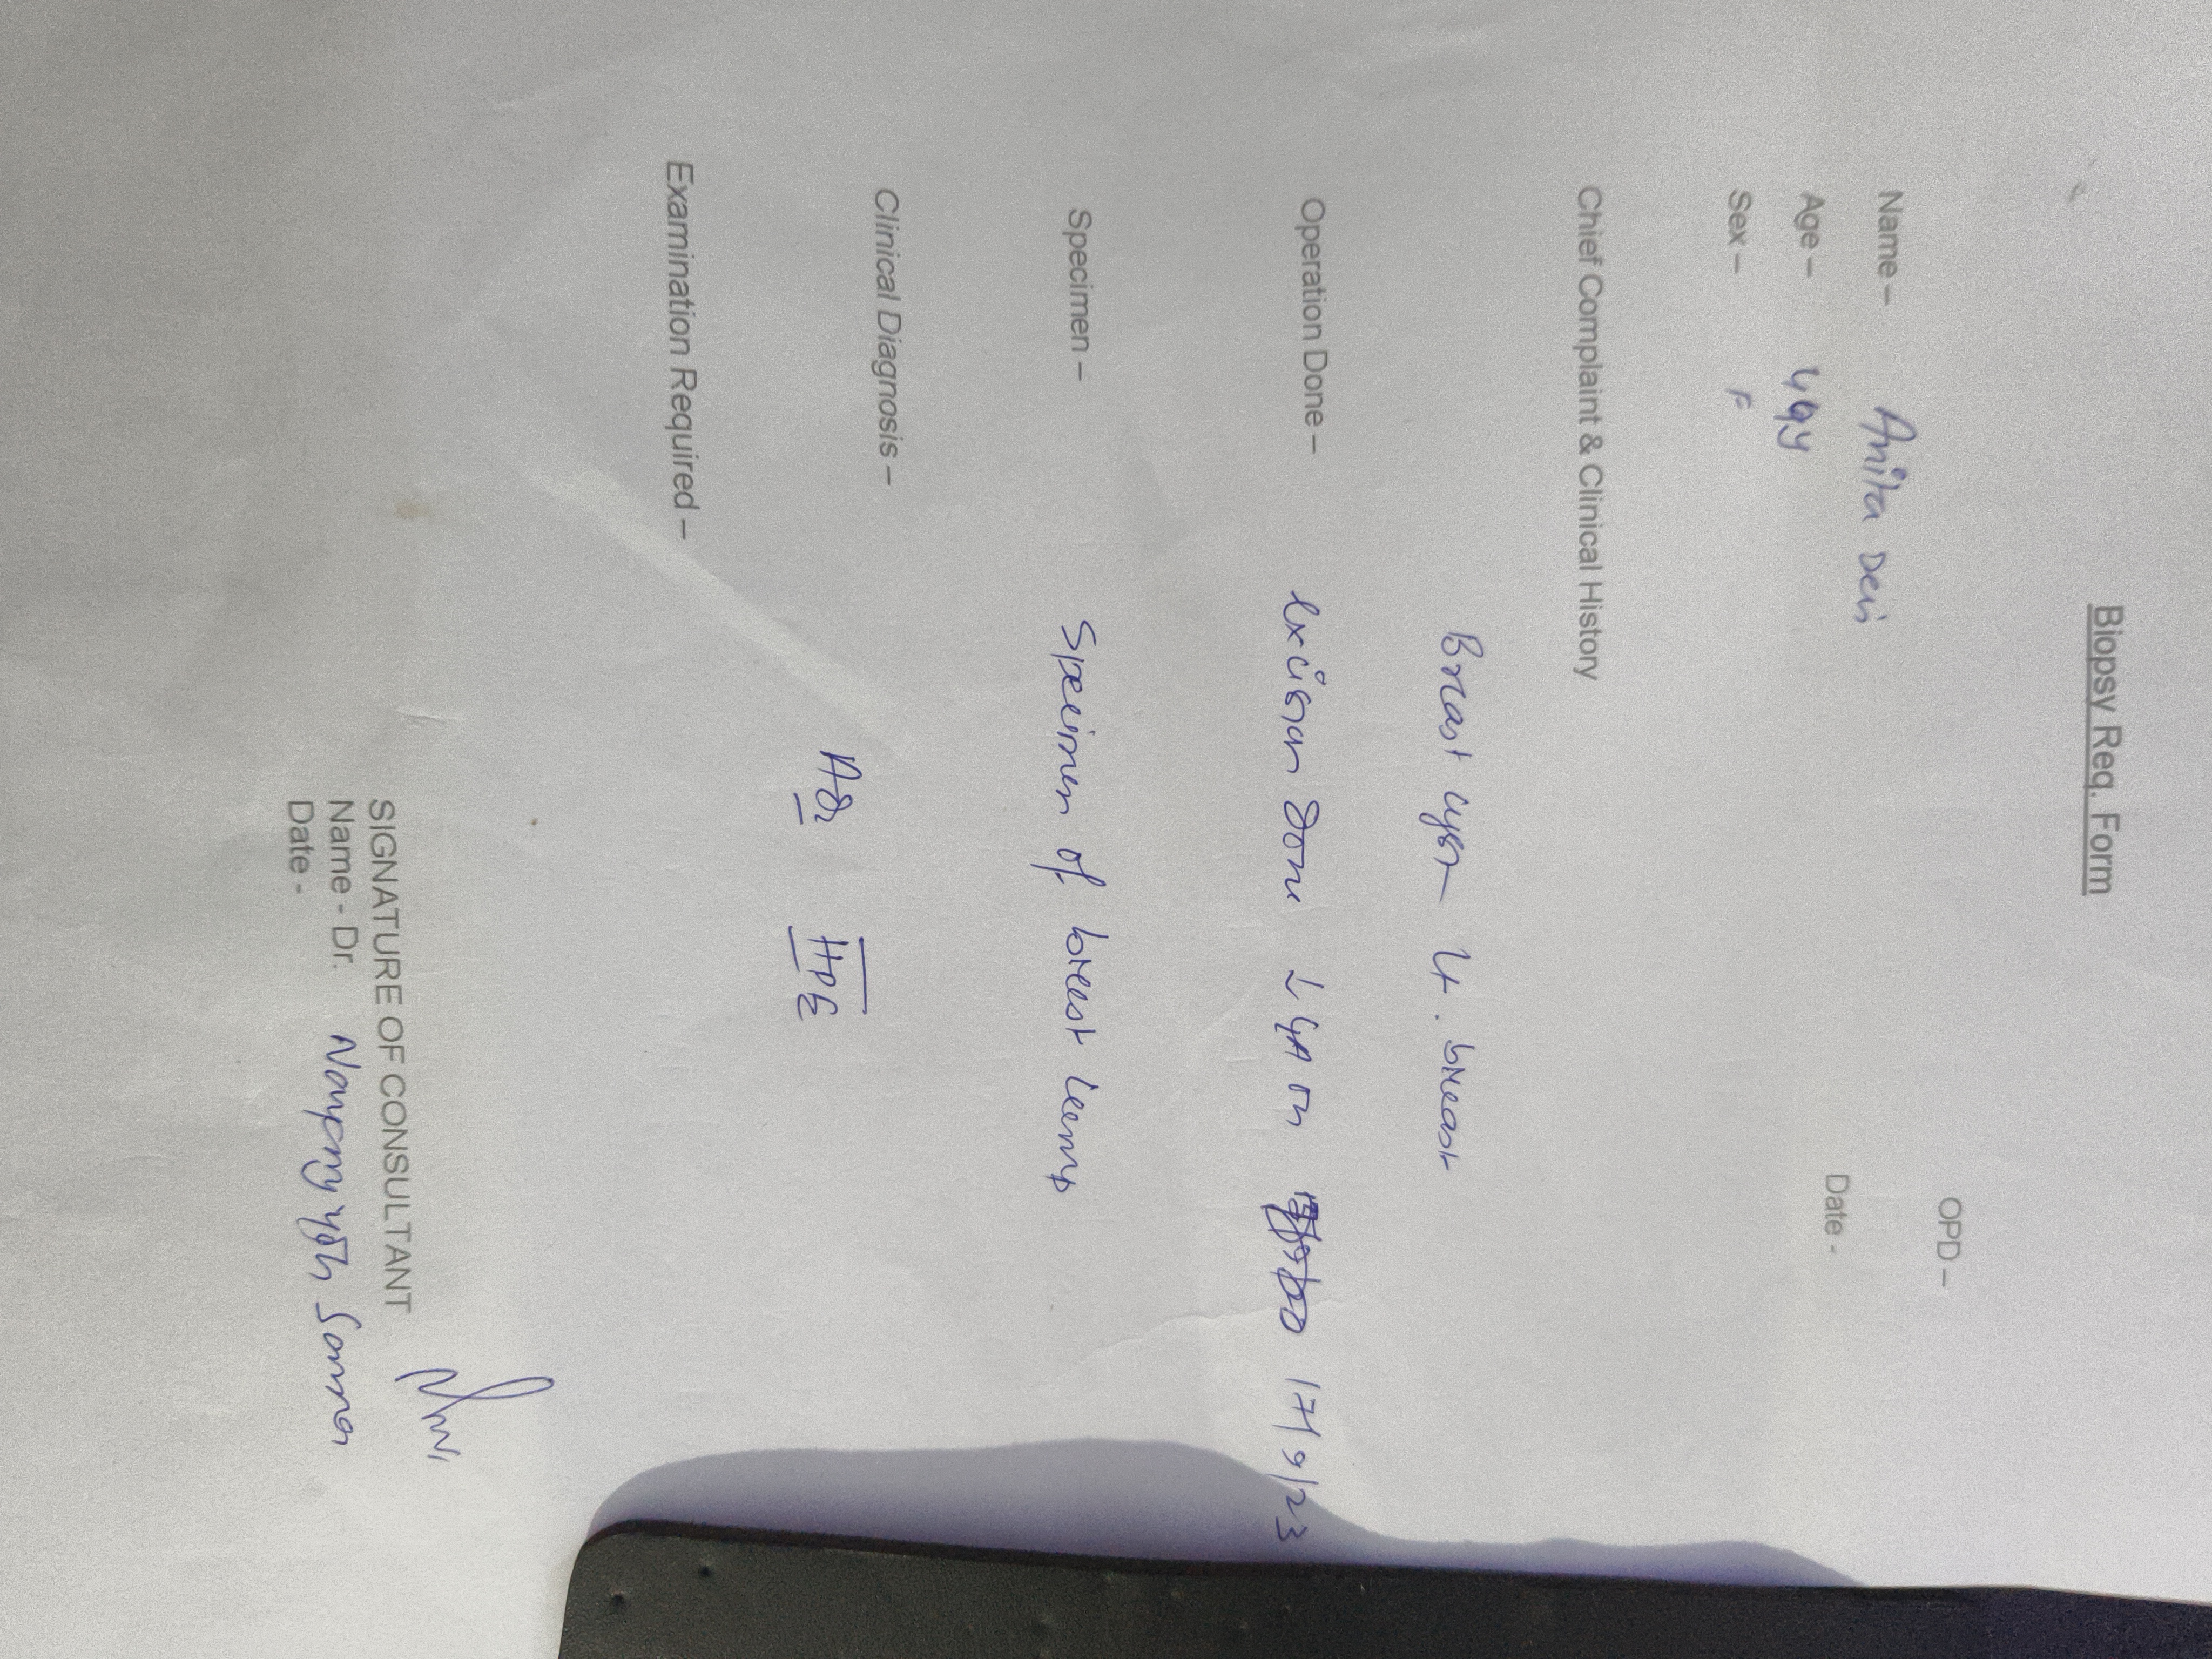 Biopsy Req. Form
OPD –
Name – Anita Devi
Date -
Age – 49y
Sex – F
Chief Complaint & Clinical History
Breast cyst Lt. breast
Operation Done – Excision done ↓ LA on 17/9/23
Specimen – Specimen of breast lump
Clinical Diagnosis –
Adv HPE
Examination Required –
SIGNATURE OF CONSULTANT
Name - Dr.
Date -